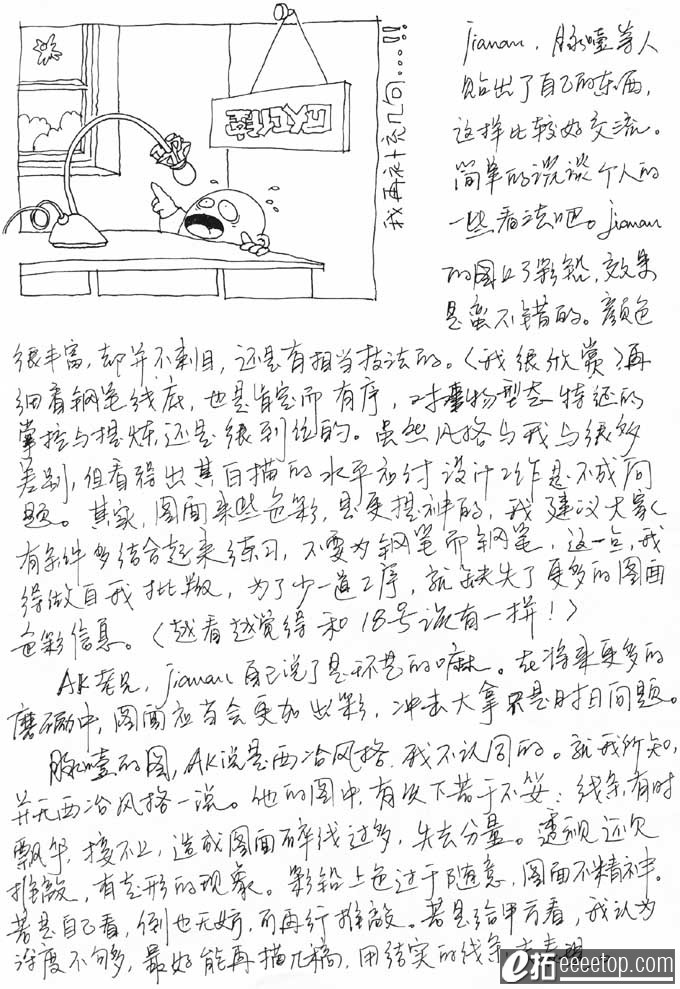 我再补充几句...!!
jianan，脉噎等人
贴出了自己的东西，
这样比较好交流。
简单的说谈个人的
一些看法吧。jianan
的图上了彩铅，效果
是蛮不错的。颜色
很丰富，却并不刺目，还是有相当技法的。（我很欣赏）再
细看钢笔线底，也是肯定而有序，对事物型态特征的
掌控与提炼还是很到位的。虽然风格与我有很多
差别，但看得出其白描的水平应付设计工作是不成问
题。其实，图面来些色彩，是更提神的，我建议大家
有条件多结合起来练习，不要为钢笔而钢笔，这一点，我
得做自我批判，为了少一道工序，就缺失了更多的图面
色彩信息。（越看越觉得和18号说有一拼！）
AK老兄，jianan自己说了是不是的嘛。在将来更多的
磨砺中，图面应当会更加出彩，冲击大拿只是时日问题。
脉噎的图，AK说是西冷风格，我不认同的。就我所知，
并无西冷风格一说。他的图中，有以下若干不妥：线条有时
飘华，接不上，造成图面碎线过多，失去分量。透视还欠
推敲，有变形的现象。彩铅上色过于随意，图面不精神。
若是自己看，倒也无妨，而再行推敲。若是给甲方看，我认为
深度不够多，最好能再描几稿，用结实的线条
e拓 eeeetop.com